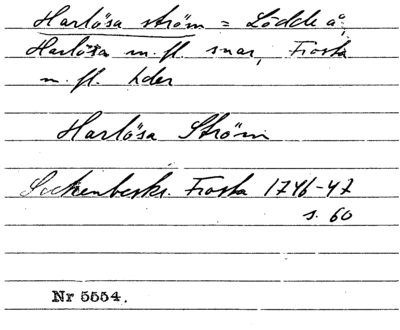 Harlösa ström = Lödde å;
Harlösa m. fl. snar, Frosta
m. fl. hder
Harlösa Ström
Sockenbeskr. Frosta 1746-47
s. 60
Nr 5554.